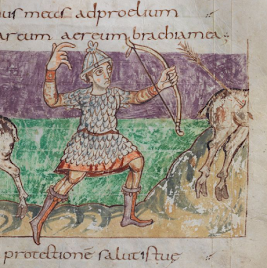 us meas adproelium
arcum aereum brachiamea
protectionē salutistuę